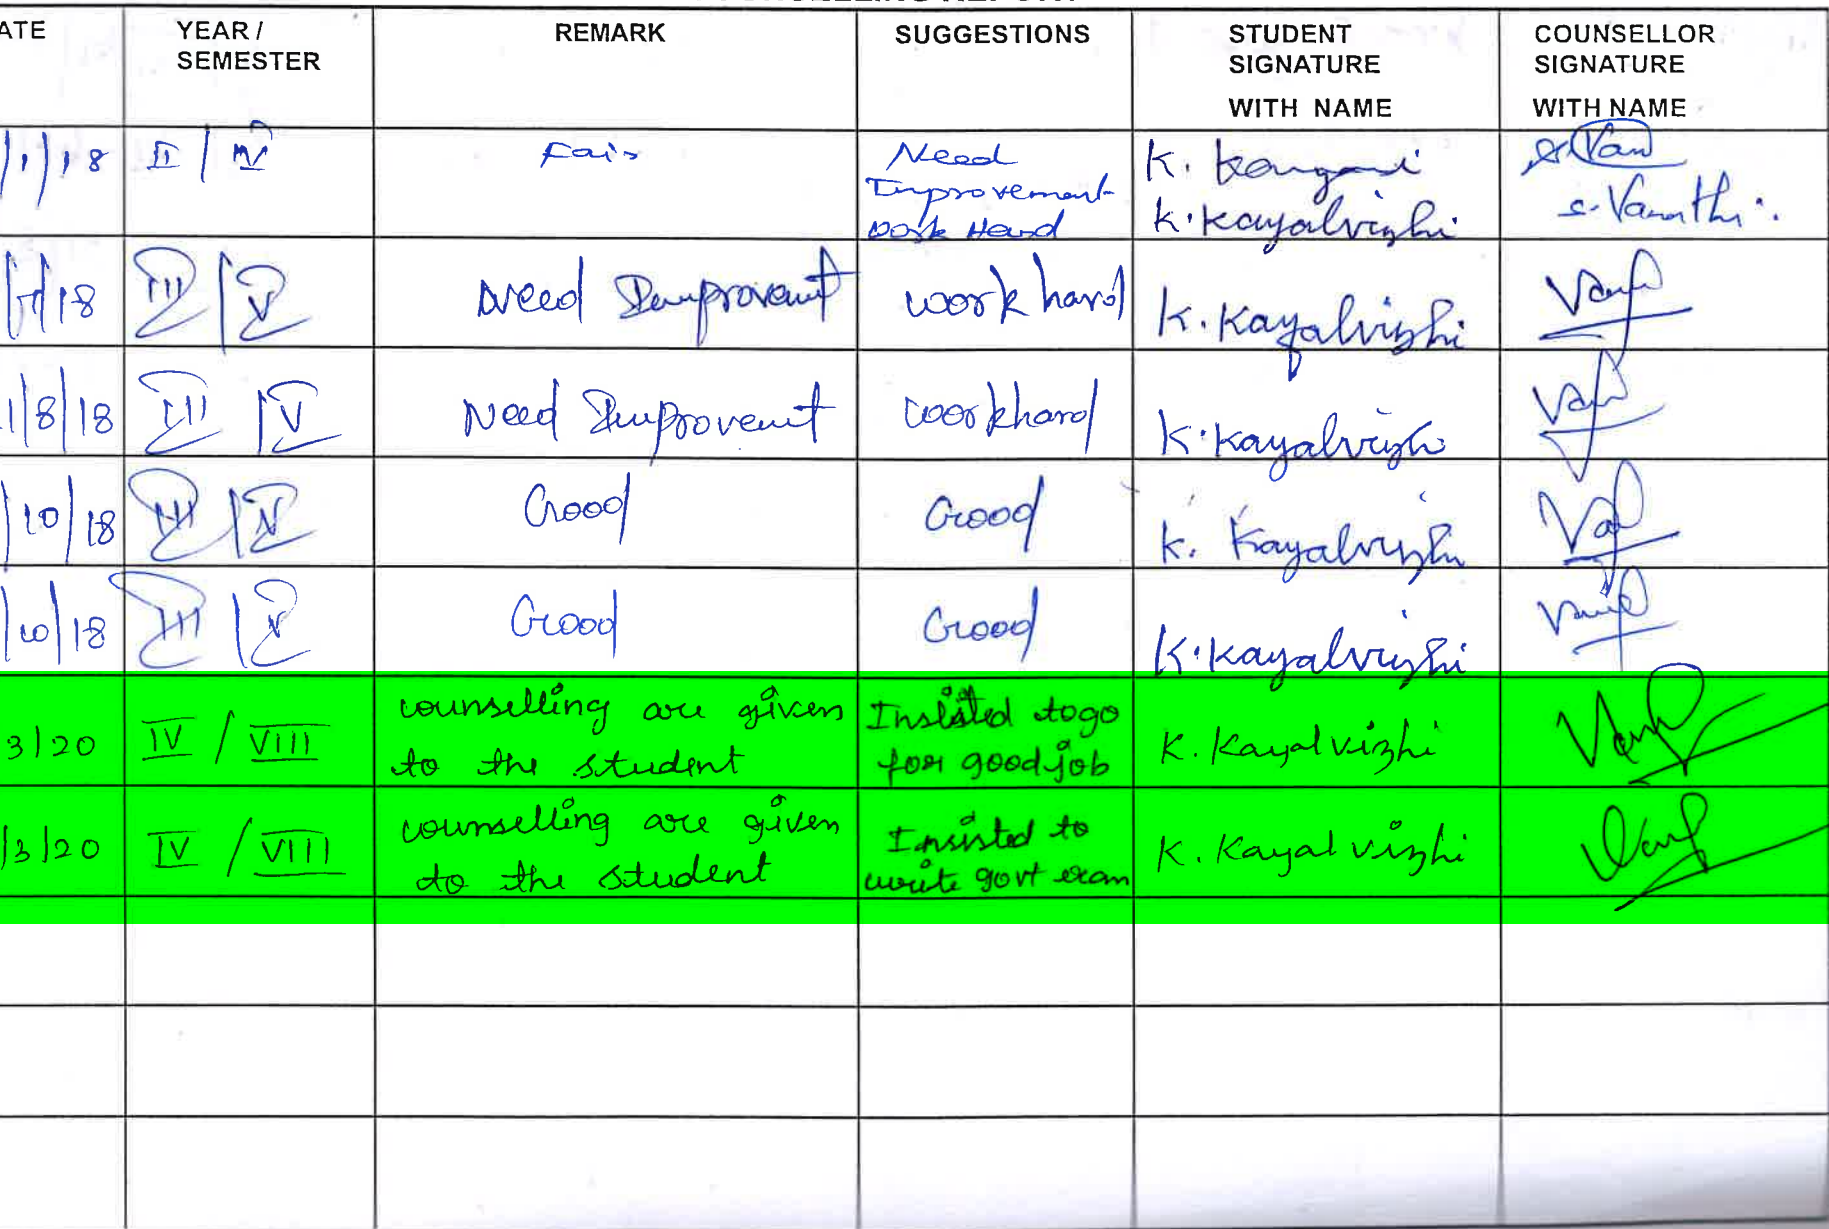 ATE YEAR / SEMESTER REMARK SUGGESTIONS STUDENT SIGNATURE WITH NAME COUNSELLOR SIGNATURE WITH NAME
/1/18 II / IV Fair Need Improvement Work Hard K. K.Kayalvizhi S. Vanathi.
/7/18 III / V Need Improvent work hard K. Kayalvizhi
1/8/18 III / V Need Improvent workhard K. Kayalvizhi
/10/18 III / V Good Good K. Kayalvizhi
/10/18 III / V Good Good K. Kayalvizhi
3/20 IV / VIII counselling are given to the student Insisted togo for good job K. Kayalvizhi
/3/20 IV / VIII counselling are given to the student Insisted to write govt exam K. Kayalvizhi